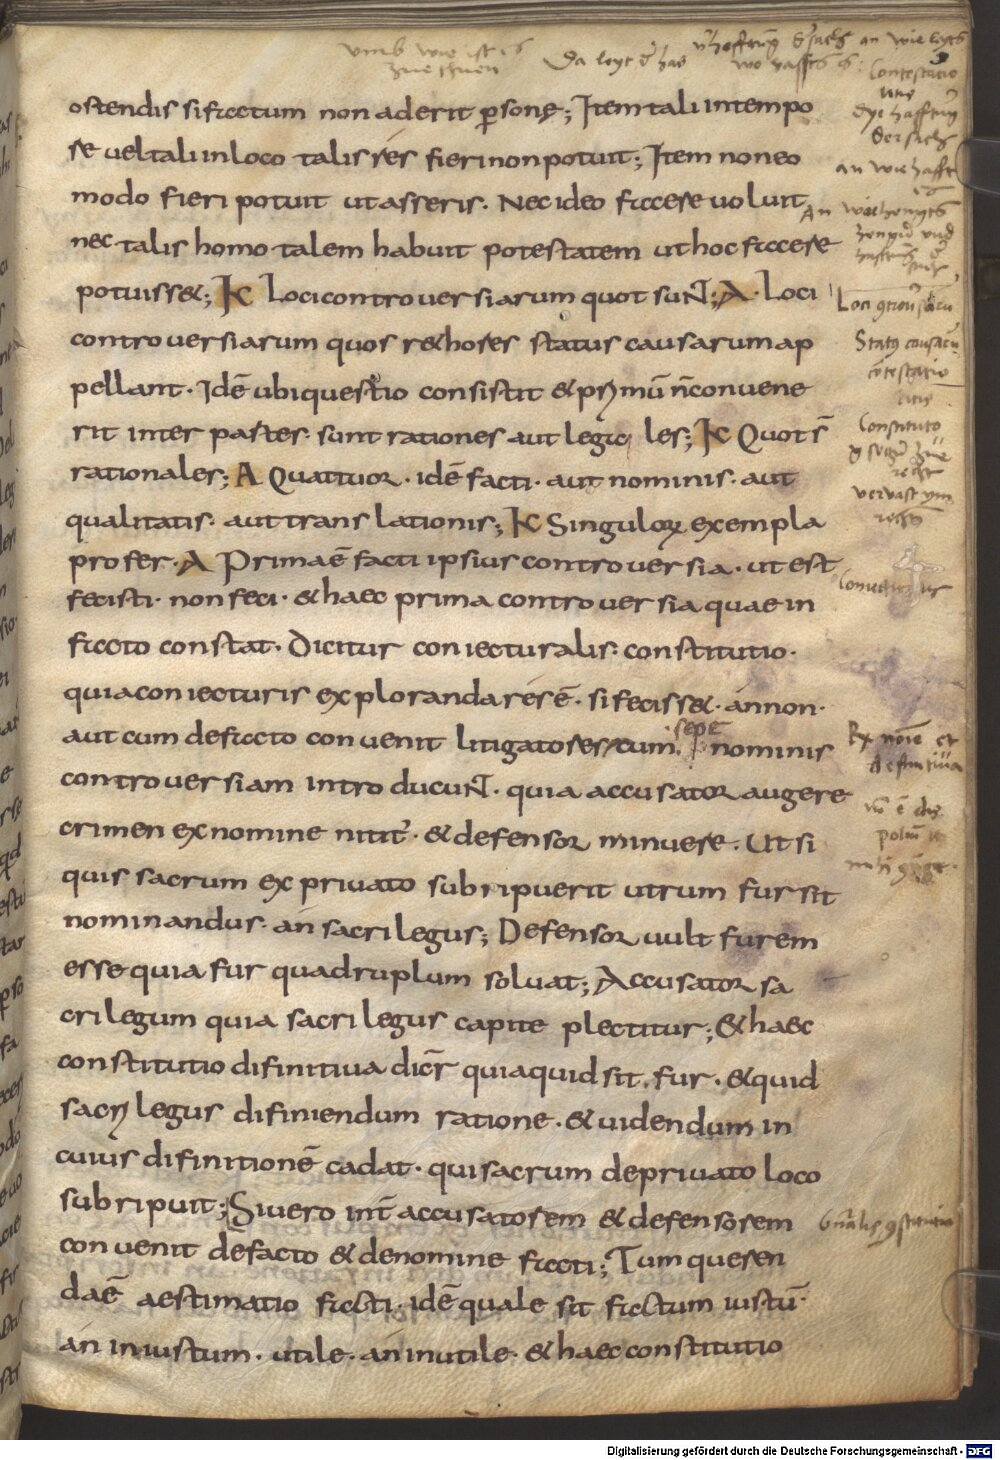 ostendis si factum non aderit psonę; Item tali in tempo
re uel tali in loco talis rés fieri non potuit; Item non eo
modo fieri potuit ut asseris. Nec ideo facere uoluit
nec talis homo talem habuit potestatem ut hoc facere
potuiss&; K Loci controuersiarum quot suNT; A. Loci
controuersiarum quos r&hores status causarum ap
pellant. Idē ubi questio consistit & prymū ñ conuene
rit inter partes. sunt rationes aut lega les; K Quot s̄
rationales; A Quattuor. idē facti. aut nominis. aut
qualitatis. aut translationis; K Singuloꝝ exempla
profer. A Prima ē facti ipsius controuersia. ut est
fecisti. non feci. & haec prima controuersia quae in
facto constat. Dicitur coniecturalis. constitutio.
quia coniecturis exploranda rés ē. si feciss&. an non.
aut cum de facto conuenit litigatores cum sepe nominis
controuersiam introducuNT. quia accusator augere
crimen ex nomine nitit̄. & defensor minuere. Ut si
quis sacrum ex priuato subripuerit utrum fur sit
nominandus. an sacrilegus; Defensor uult furem
esse quia fur quadruplum soluat; Accusator sa
crilegum quia sacrilegus capite plectitur; & haec
constitutio difinitiua dicr̄ quia quid sit fur. & quid
sacrylegus difiniendum ratione. & uidendum in
cuius difinitionē cadat. qui sacrum de priuato loco
subripuit; Si uero int̄ accusatorem & defensorem
conuenit de facto & de nomine facti; Tum queren
da ē aestimatio facti. idē quale sit factum iustū.
án iniustum. utile. án inutile. & haec constitutio
Contestatio
litis
der sach
Stat9 causarū
cōtestatio
litis
Constituto
Ex noīe et
definitiua
Digitalisierung gefördert durch die Deutsche Forschungsgemeinschaft - DFG